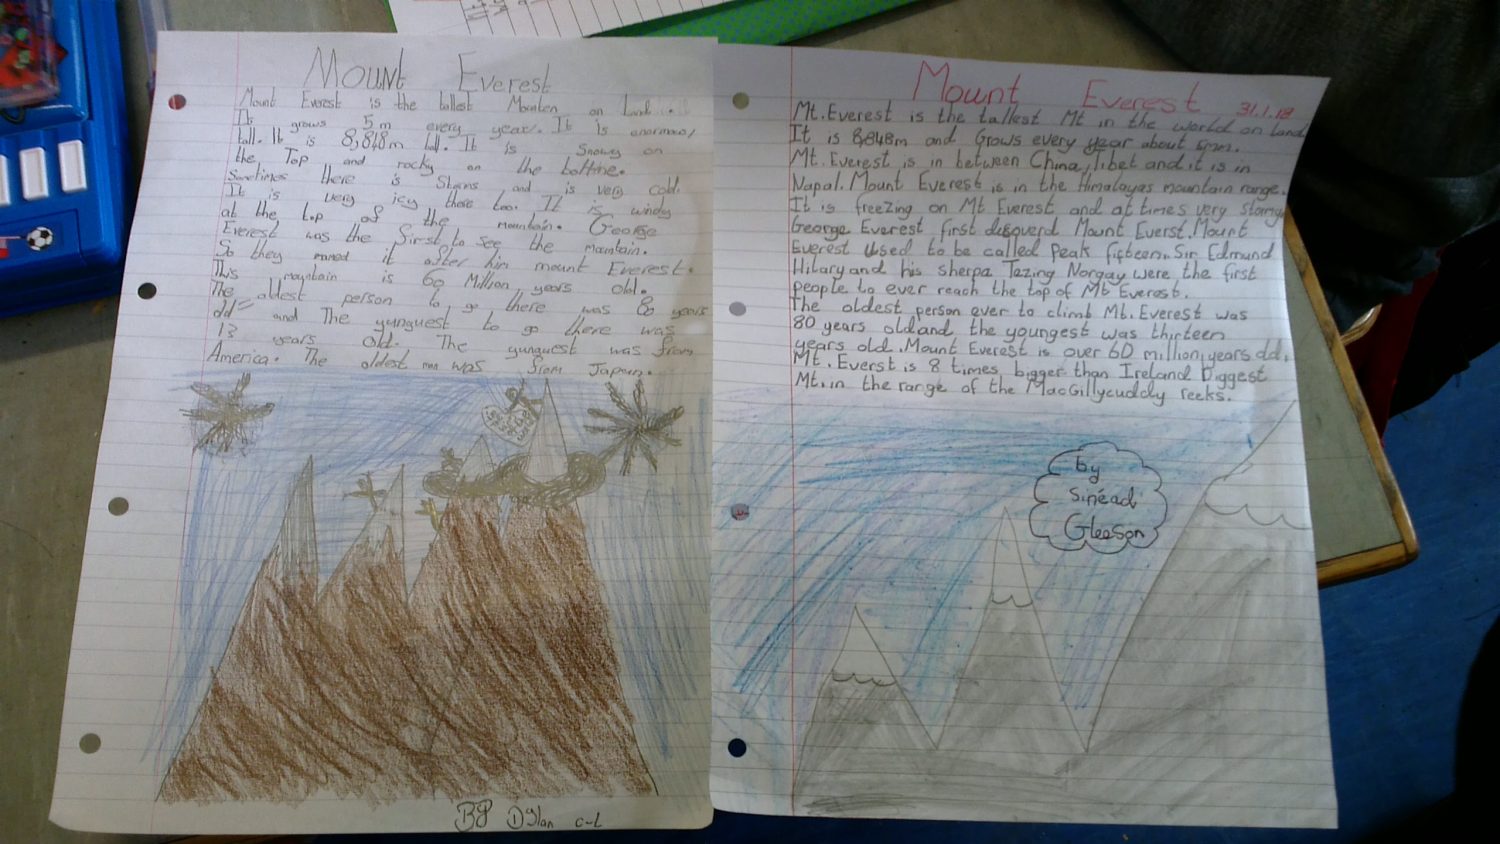 Mount Everest
Mount Everest is the tallest Mounten on Land.
It grows 5m every year. It is enormous,
tall. It is 8,848m tall. It is Snowy on
the Top and rocky on the bottome.
Sometimes there is Storms and is very cold.
It is very icy there too. It is windy
at the top of the mountain. George
Everest was the first to see the mountain.
So they named it after him mount Everest.
This mountain is 60 Million years old.
The oldest person to go there was 80 years
old and The yunguest to go there was
13 years old. The yunguest was from
America. The oldest man was from Japan.
By Dylan c-L
Mount Everest 31.1.18
Mt. Everest is the tallest Mt in the world on land
It is 8,848m and Grows every year about 5mm.
Mt. Everest is in between China, Tibet and it is in
Napal. Mount Everest is in the Himalayas mountain range.
It is freezing on Mt Everest and at times very stormy
George Everest first discoverd Mount Everst. Mount
Everest used to be called Peak fifteen. Sir Edmund
Hilary and his sherpa Tezing Norgay were the first
people to ever reach the top of Mt Everest.
The oldest person ever to climb Mt. Everest was
80 years old and the youngest was thirteen
years old. Mount Everest is over 60 million years old.
Mt. Everst is 8 times bigger than Ireland biggest
Mt. in the range of the MacGillycuddy reeks.
by
Sinéad
Gleeson